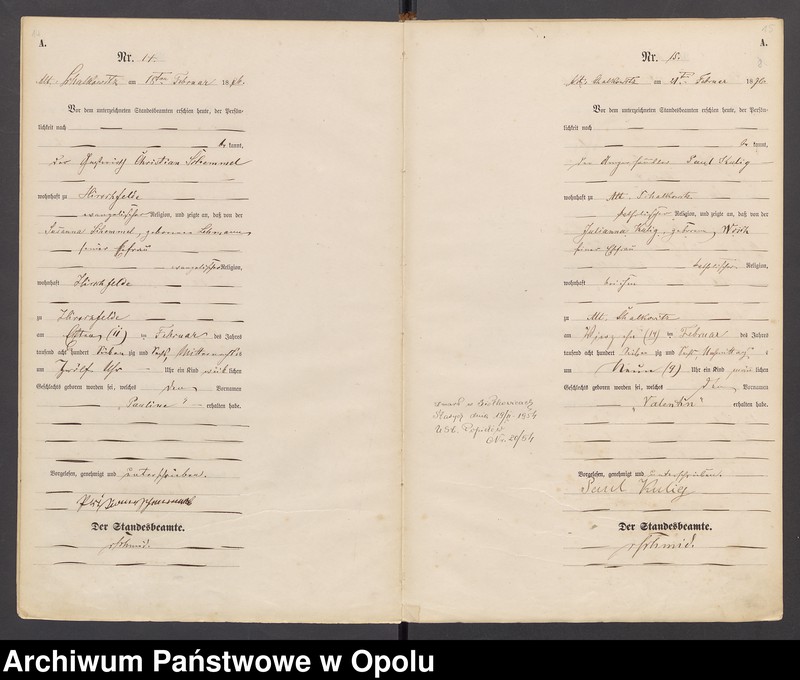 A.
Nr. 14.
Alt Schalkowitz am 15ten Februar 1876
Vor dem unterzeichneten Standesbeamten erschien heute, der Persön-
lichkeit nach
kannt,
der Christian Schemmel
wohnhaft zu Hirschfelde
evangelischer Religion, und zeigte an, daß von der
Susanna Schemmel, geborenen Lehmann
seiner Ehefrau
evangelischer Religion,
wohnhaft Hirschfelde
zu Hirschfelde
am Elften (11) ten Februar des Jahres
tausend acht hundert sieben zig und sechs Mitternachts
um Zwölf Uhr Uhr ein Kind weib lichen
Geschlechts geboren worden sei, welches den Vornamen
„Pauline" erhalten habe.
Vorgelesen, genehmigt und unterschrieben.
Der Standesbeamte.
Schmid.
A.
Nr. 15.
Alt Schalkowitz am Februar 1876
Vor dem unterzeichneten Standesbeamten erschien heute, der Persön-
lichkeit nach
kannt,
der Paul Kulig
wohnhaft zu Alt Schalkowitz
katholischer Religion, und zeigte an, daß von der
Julianna Kulig, geborenen
seiner Ehefrau
katholischer Religion,
wohnhaft bei ihm
zu Alt Schalkowitz
am Vierzehn (14) ten Februar des Jahres
tausend acht hundert sieben zig und sechs, Nachmittags
um Neun (9) Uhr ein Kind männ lichen
Geschlechts geboren worden sei, welches den Vornamen
„Valentin" erhalten habe.
zmarł w
dnia 1954
USC. Popielów
Nr. 20/54
Vorgelesen, genehmigt und unterschrieben.
Paul Kulig
Der Standesbeamte.
Schmid.
Archiwum Państwowe w Opolu